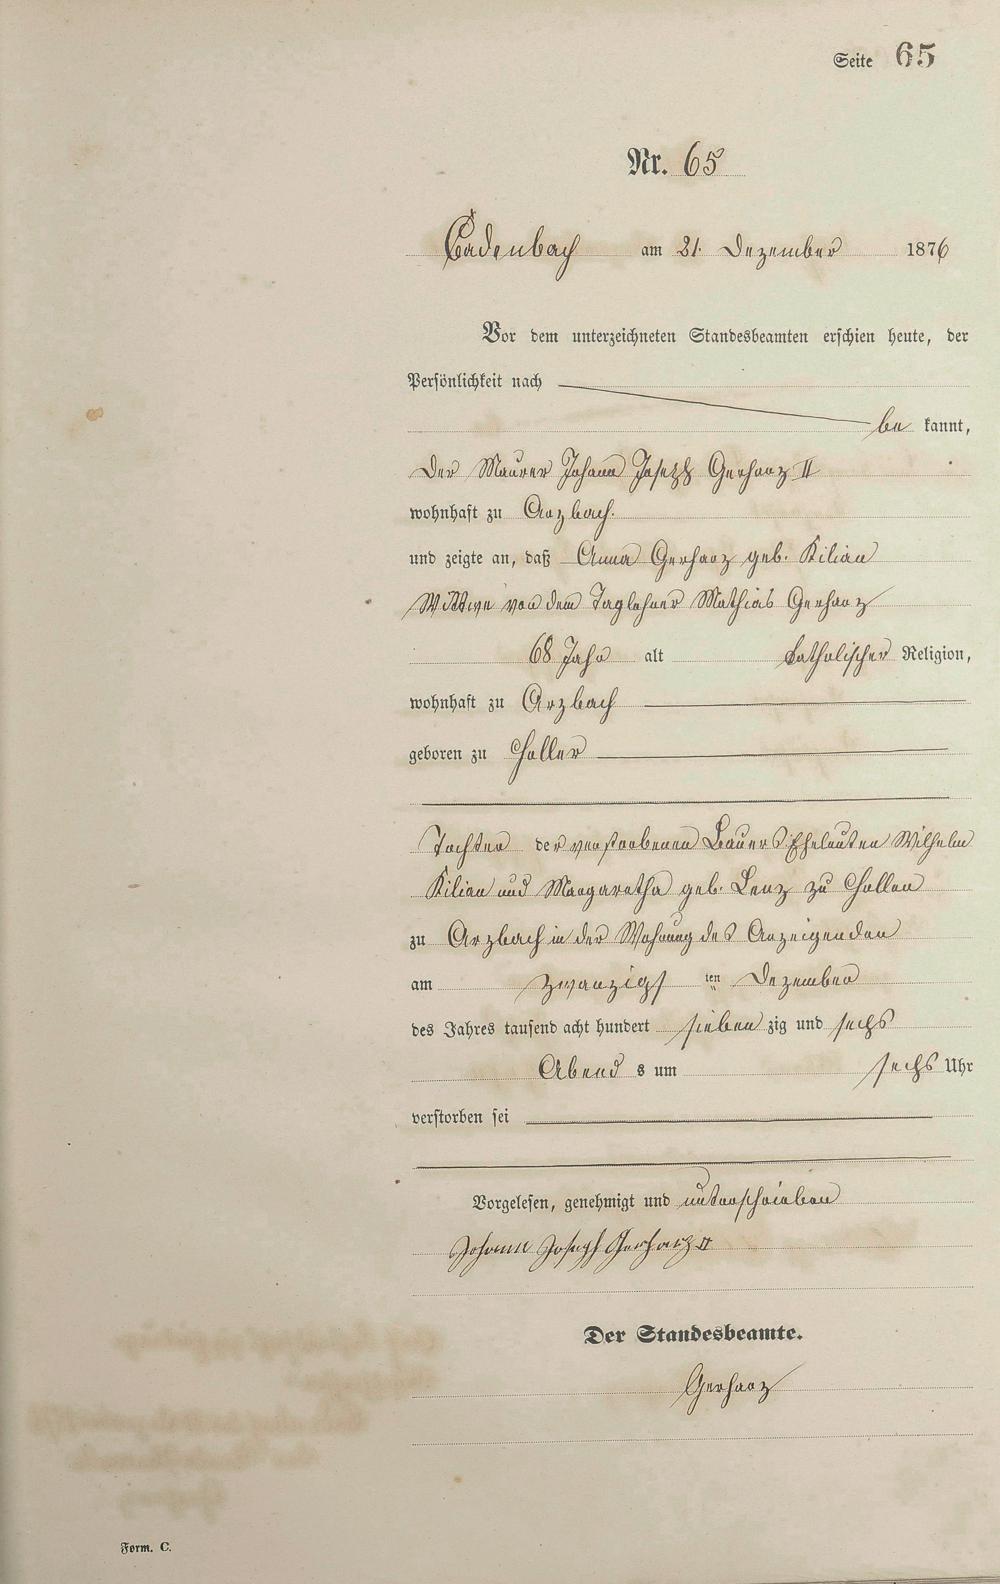 Seite 65
Nr. 65
Cadenbach am 21. Dezember 1876
Vor dem unterzeichneten Standesbeamten erschien heute, der
Persönlichkeit nach
be kannt,
der Maurer Johann Joseph Gerharz II
wohnhaft zu Arzbach.
und zeigte an, daß Anna Gerharz geb. Kilian
Wittwe von dem Taglehner Mathias Gerharz
68 Jahr alt katholischer Religion,
wohnhaft zu Arzbach
geboren zu Holler
Tochter der verstorbenen Bauers Eheleuten Wilhelm
Kilian und Margaretha geb. Lenz zu Holler
zu Arzbach in der Wohnung des Anzeigenden
am zwanzigs ten Dezember
des Jahres tausend acht hundert sieben zig und sechs
Abend s um sechs Uhr
verstorben sei
Vorgelesen, genehmigt und unterschrieben
Johann Joseph Gerharz II
Der Standesbeamte.
Gerharz
Form. C.